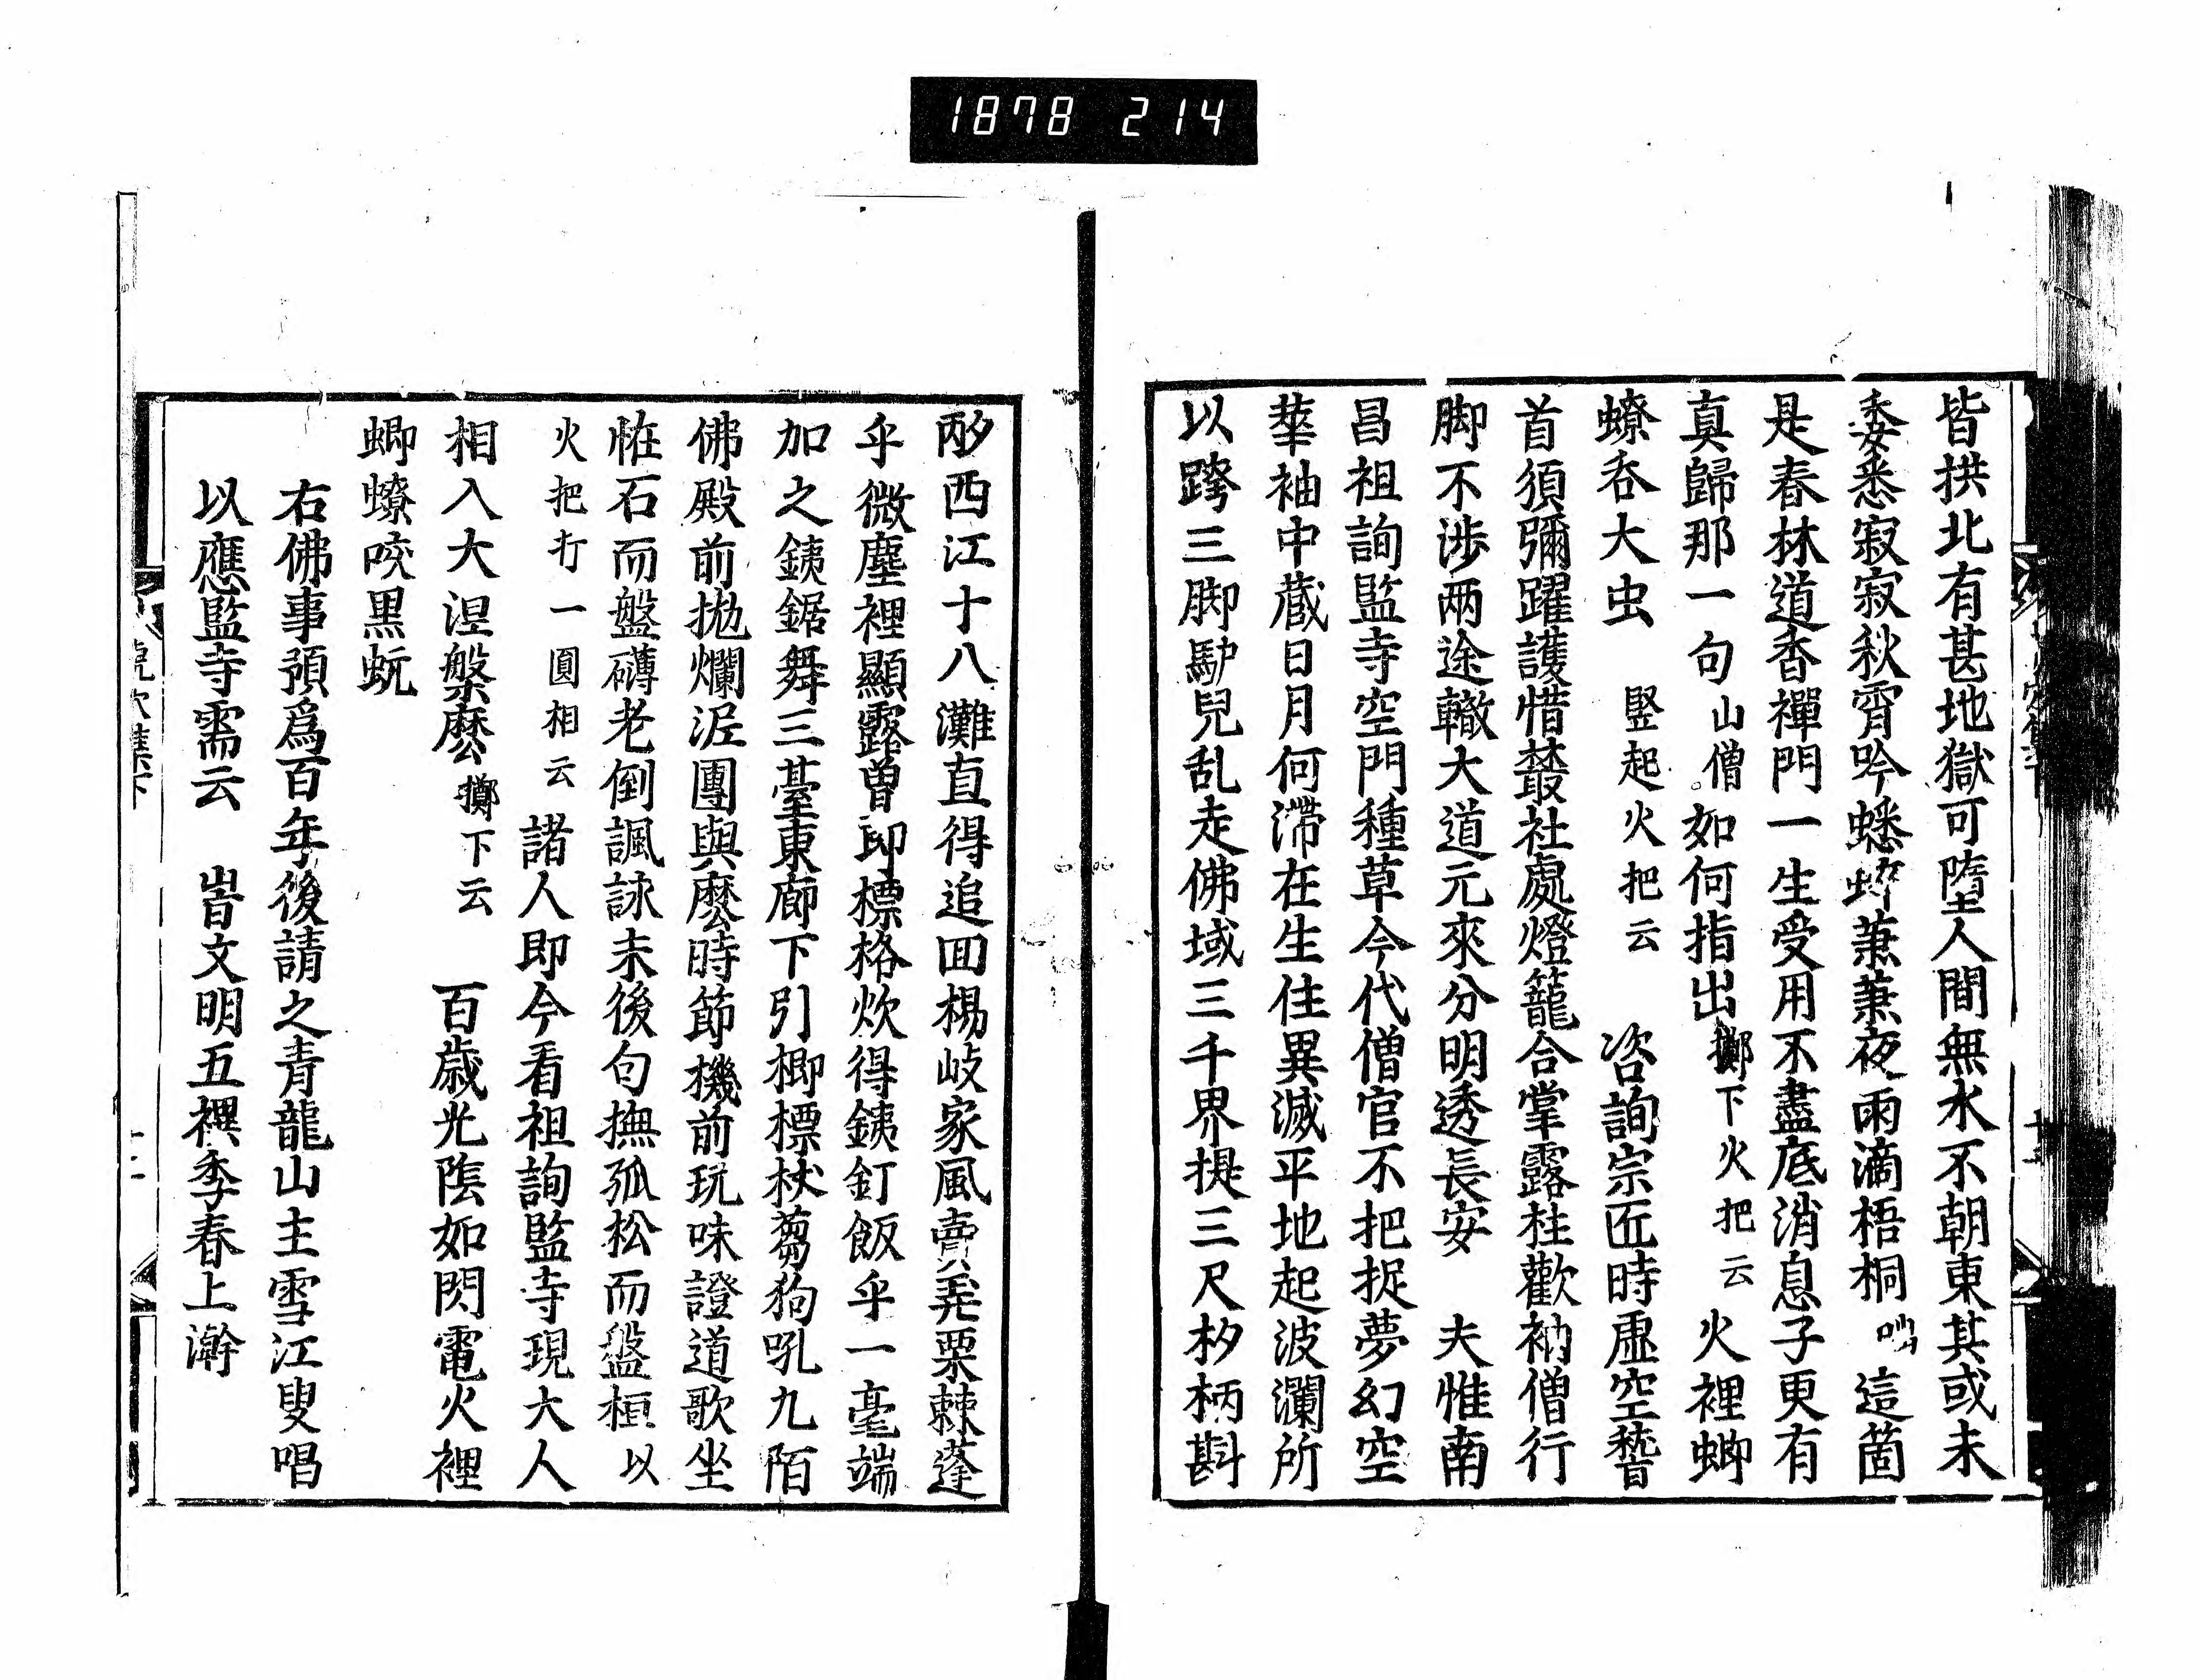 1878 214
皆拱北有甚地獄可墮人間無水不朝東其或未
委悉寂寂秋宵吟蟋蟀蕭蕭夜雨滴梧桐 這箇
是春林道香禪門一生受用不盡底消息子更有
真歸那一句山僧如何指出擲下火把云火裡蝍
蟟吞大虫 竪起火把云 咨詢宗匠時虛空䭫
首須彌躍護惜叢社處燈籠合掌露柱歡衲僧行
脚不涉兩途轍大道元來分明透長安 夫惟南
昌祖詢監寺空門種草今代僧官不把捉夢幻空
華袖中蔵日月何滯在生住異滅平地起波瀾所
以跨三脚馿兒乱走佛域三千界提三尺杓柄斟
西江十八灘直得追回楊岐家風賣弄栗棘蓬
乎微塵裡顯露曾郎標格炊得銕釘飯乎一毫端
加之銕鋸舞三䑓東廊下引楖標杖蒭狗吼九陌
佛殿前拋爛泥團與麽時節機前玩味證道歌坐
恠石而盤礴老倒諷詠末後句撫孤松而盤桓以
火把打一圓相云諸人即今看祖詢監寺現大人
相入大涅槃麽擲下云 百歲光陰如閃電火裡
蝍蟟咬黒蚖
右佛事預爲百年後請之青龍山主雪江叟唱
以應監寺需云 旹文明五禩季春上澣